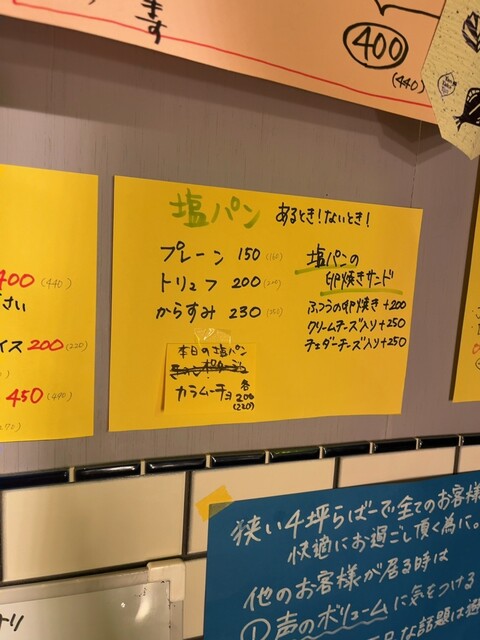 ます
400
(440)
塩パン あるとき！ないとき！
プレーン 150 (160)
トリュフ 200
からすみ 230
塩パンの
卵焼きサンド
ふつうの卵焼き +200
クリームチーズ入り +250
チェダーチーズ入り +250
本日の塩パン
カラムーチョ 各200
(220)
400 (440)
さい
イス 200 (220)
450
狭い4坪らばーで全てのお客様
快適にお過ごし頂く為に。
他のお客様が居る時は
①声のボリュームに気をつける
な話題は